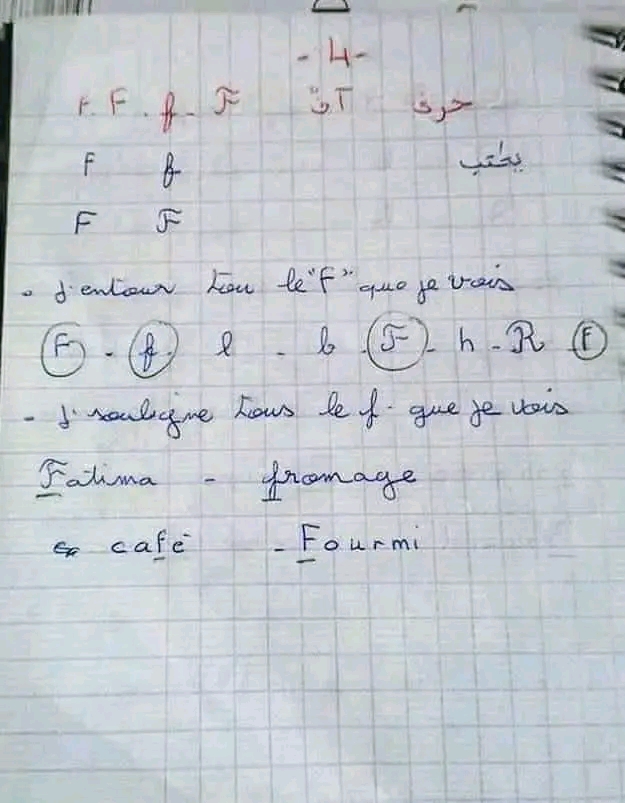 - 4 -
F. F. f. F حرف آف
F f يكتب
F F
- J'entour tou le "F" que je vois
F - f l - b - F - h - R F
- J. souligne tous le f. que je vois
Fatima - fromage
café - Fourmi